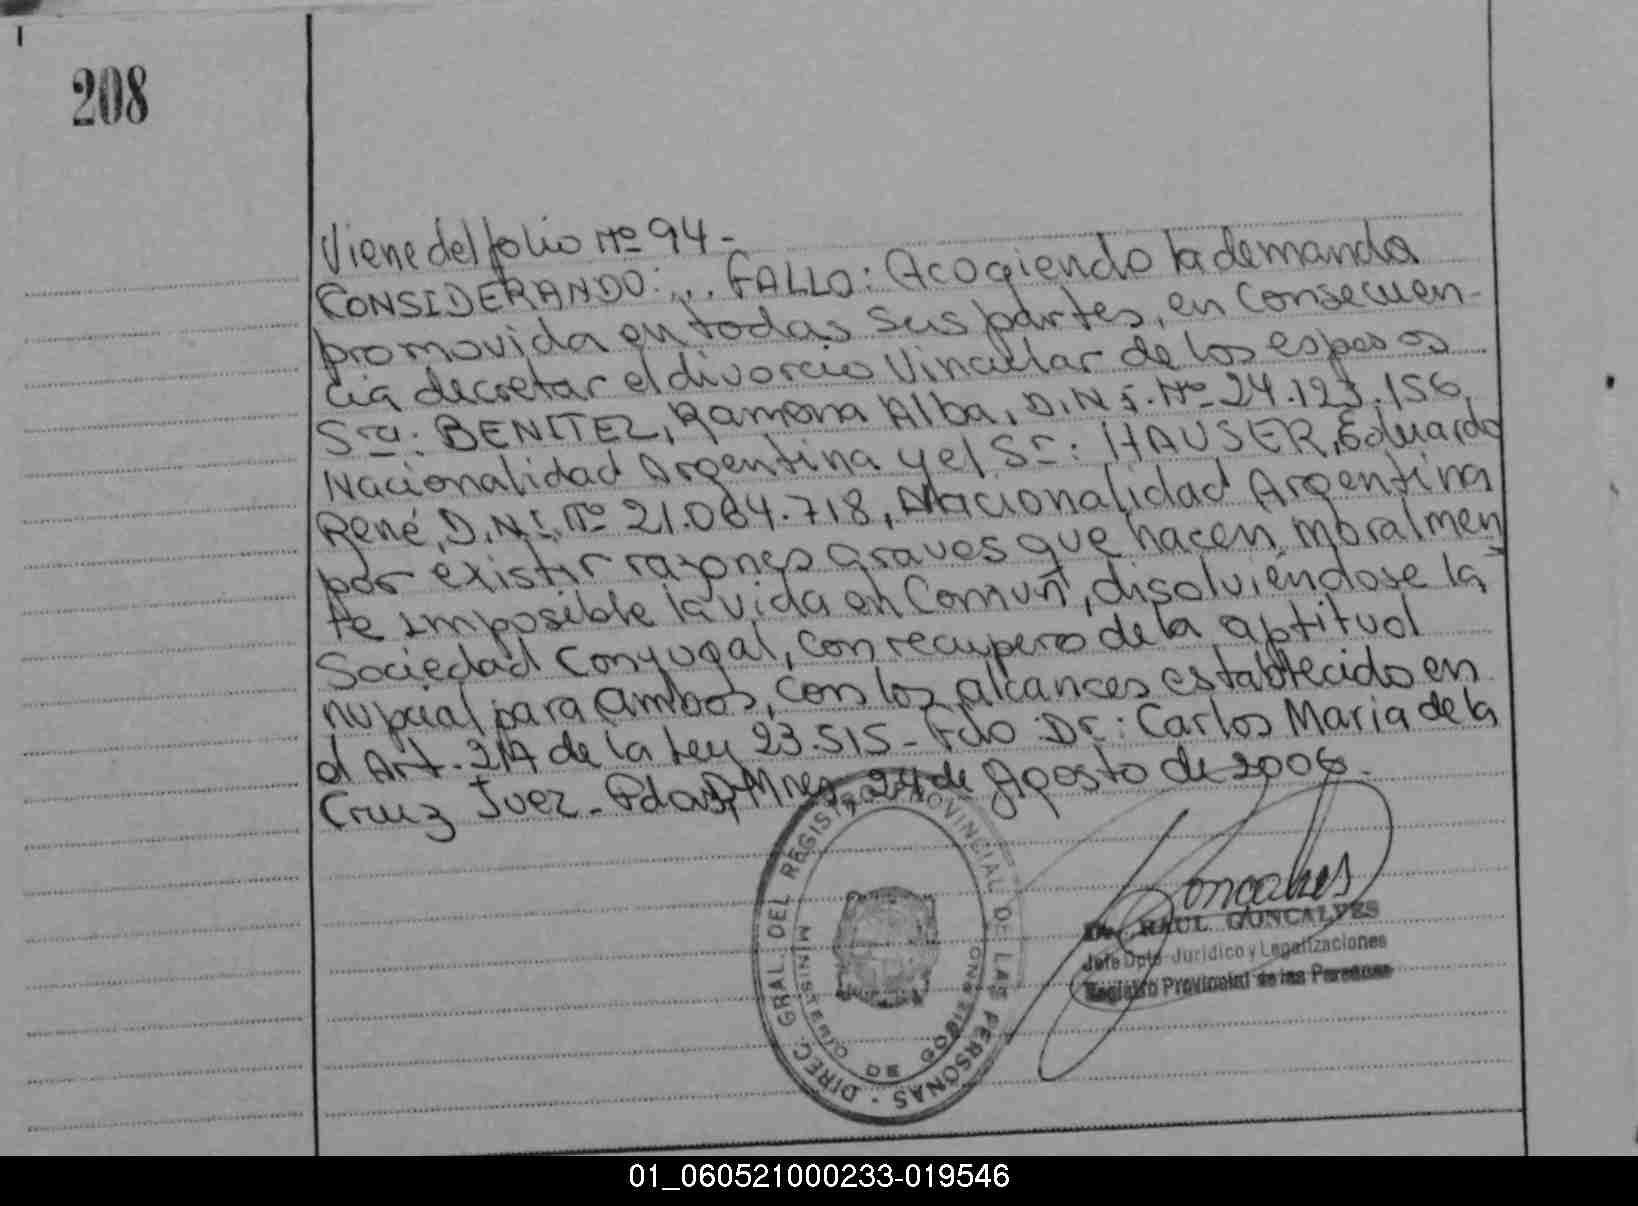 208
Viene del folio Nº 94-
CONSIDERANDO:... FALLO: Acogiendo la demanda
promovida en todas sus partes, en consecuen-
cia decretar el divorcio Vincular de los esposos
Sra: BENITEZ, Ramona Alba, D.N.I. Nº 24.123.156,
Nacionalidad Argentina y el Sr: HAUSER, Eduardo
René, D.N.I. Nº 21.064.718, Nacionalidad Argentina
por existir razones graves que hacen moralmen
te imposible la vida en Común, disolviéndose la
Sociedad Conyugal, con recupero de la aptitud
nupcial para ambos, con los alcances establecido en
el Art. 217 de la Ley 23.515- Fdo: Dr: Carlos Maria de la
Cruz Juez- Pdas, Mnes, 24 de Agosto de 2006.
DIREC. GRAL. DEL REGISTRO PROVINCIAL DE LAS PERSONAS -
MINISTERIO DE GOBIERNO
Goncalves
Dr. RAUL GONCALVES
Jefe Dpto. Jurídico y Legalizaciones
Registro Provincial de las Personas
01_060521000233-019546